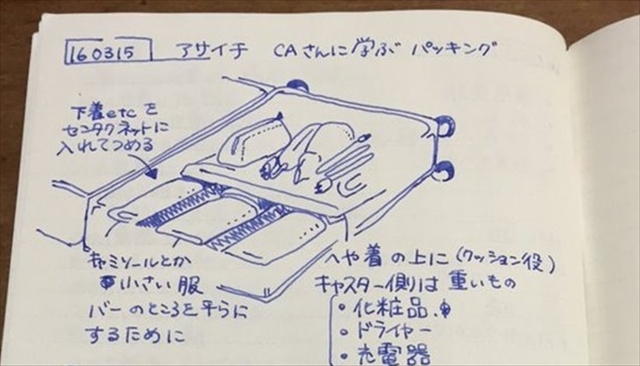 160315 アサイチ CAさんに学ぶ パッキング
下着etcを
センタクネットに
入れてつめる
キャミソールとか
小さい服
バーのところを平らに
するために
へや着の上に(クッション役)
キャスター側は重いもの
・化粧品
・ドライヤー
・充電器